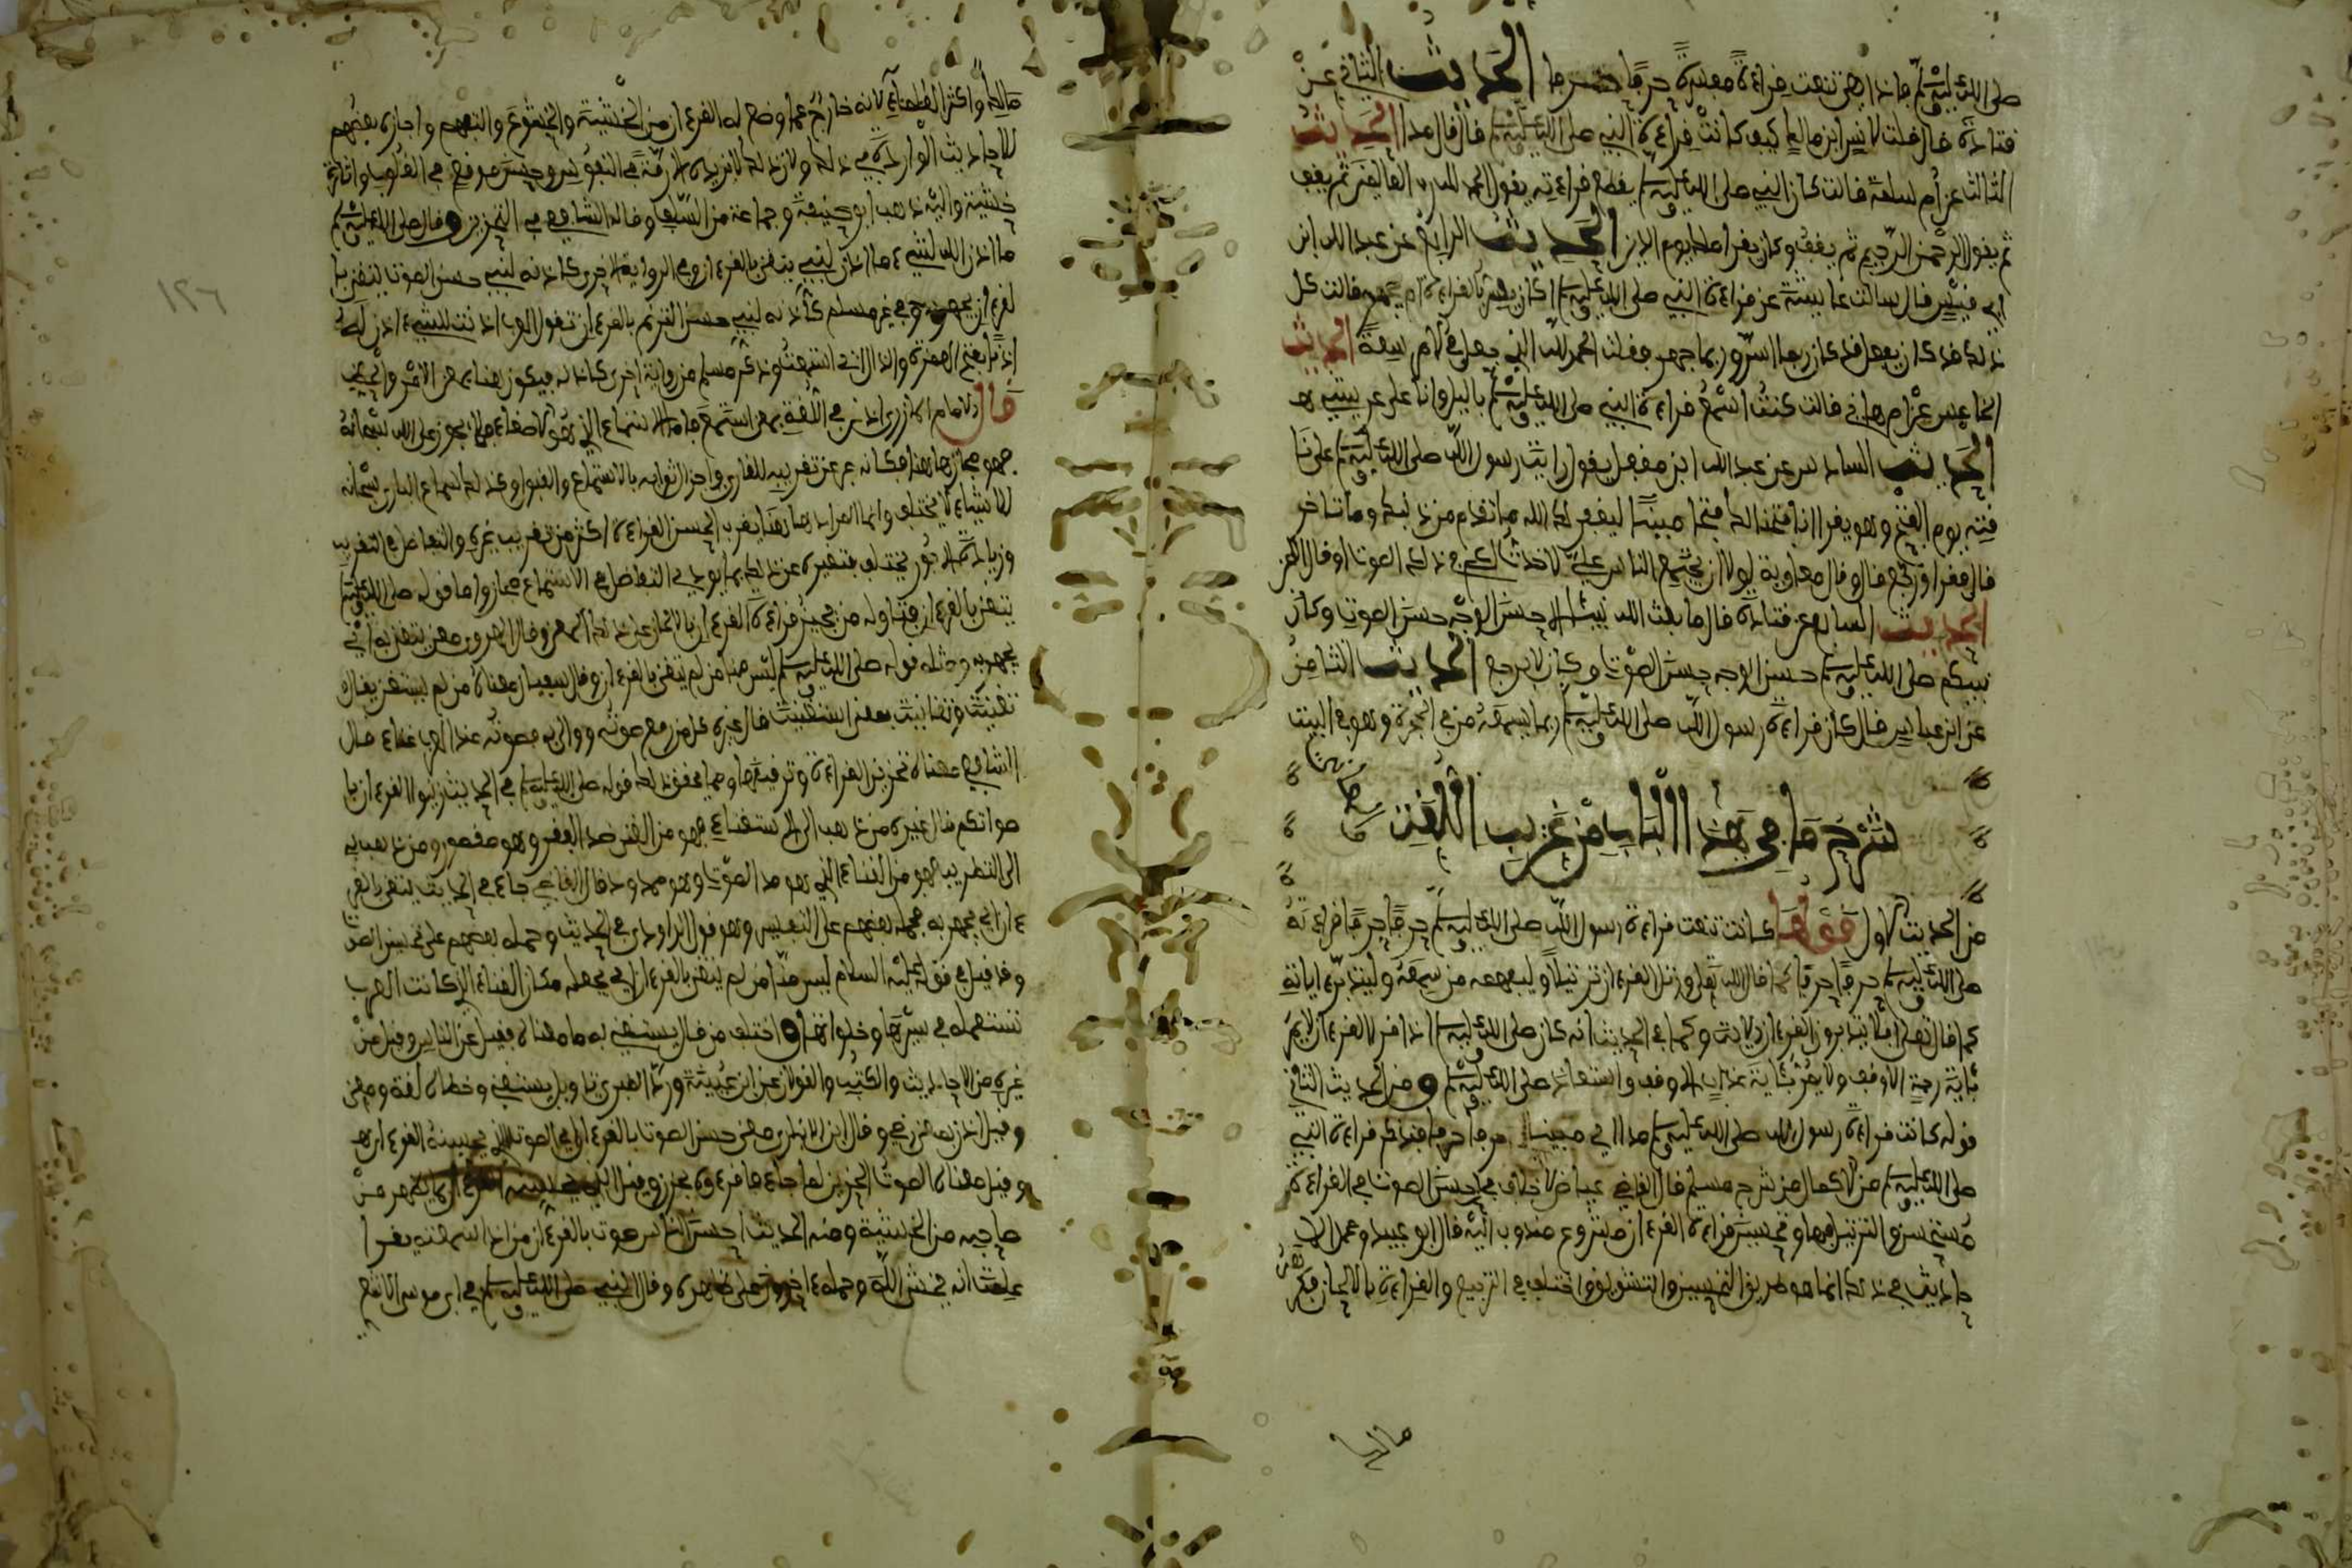 صلى الله عليه وسلم فاذا هي تنعت قراءة مفسرة حرفا حرفا الحديث الثاني عن
قتادة قال قلت لانس ابن مالك كيف كانت قراءة النبي صلى الله عليه وسلم قال قال مدا الحديث
الثالث عن أم سلمة قالت كان النبي صلى الله عليه وسلم يقطع قراءته يقول الحمد لله رب العالمين ثم يقف
ثم يقول الرحمن الرحيم ثم يقف وكان يقرأ ملك يوم الدين الحديث الرابع عن عبد الله ابن
ابي قيس قال سالت عايشة عن قراءة النبي صلى الله عليه وسلم أكان يسر بالقراءة ام يجهر قالت كل
ذلك قد كان يفعل قد كان ربما اسر وربما جهر فقلت الحمد لله الذي جعل في الامر سعة الحديث
الخامس عن ام هاني قالت كنت اسمع قراءة النبي صلى الله عليه وسلم بالليل وانا على عريشي
الحديث السادس عن عبد الله ابن مغفل يقول رايت رسول الله صلى الله عليه وسلم على نا
قته يوم الفتح وهو يقرا انا فتحنا لك فتحا مبينا ليغفر لك الله ما تقدم من ذنبك وما تاخر
قال فقرا ورجع قال وقال معاوية لولا ان يجتمع الناس علي لاخذت لكم في ذلك الصوت او قال اللحن
الحديث السابع عن قتادة قال ما بعث الله نبيئا الا حسن الوجه حسن الصوت وكان
نبيكم صلى الله عليه وسلم حسن الوجه حسن الصوت وكان لا يرجع الحديث الثامن
عن ابن عباس قال كان قراءة رسول الله صلى الله عليه وسلم ربما يسمعه من في الحجرة وهو في البيت
شرح ما في هذا الباب من غريب اللغة
من الحديث الاول قولها كانت تنعت قراءة رسول الله صلى الله عليه وسلم حرفا حرفا قراءته
صلى الله عليه وسلم حرفا حرفا كما قال الله تعلى ورتل القرءان ترتيلا وليفهمه من سمعه وليتدبر ءاياته
كما قال تعلى افلا يتدبرون القرءان الاية وكما في الحديث انه كان صلى الله عليه وسلم اذا قرا القرءان لا يمر
بئاية رحمة الا وقف ولا يمر بئاية عذاب الا وقف واستعاذ صلى الله عليه وسلم ومن الحديث الثاني
قوله كانت قراءة رسول الله صلى الله عليه وسلم مدا اي مبينا حرفا حرفا فتذكر قراءة النبي
صلى الله عليه وسلم من الاكمال من شرح مسلم قال القاضي عياض لا خلاف في حسن الصوت في القراءة
مستحسن والترتيل فيها وتحسين قراءة القرءان مشروع مندوب اليه قال ابو عبيد ومحمل الا
حاديث في ذلك انما هو طريق التحسين والتشويق واختلف في الترجيع والقراءة بالالحان فكره
مالك
١٢٦
مالك واكثر العلماء لانه خارج عما وضع له القرءان من الخشية والخشوع والتفهم واجازه بعضهم
للاحاديث الواردة في ذلك ولان ذلك لا يزيده الا رقة في النفوس وحسن موقع في القلوب واثارة
خشية واليه ذهب ابو حنيفة وجماعة من السلف وقاله الشافعي في التحزين وقال صلى الله عليه وسلم
ما اذن الله لشيء ما اذن لنبي يتغنى بالقرءان وفي الرواية الاخرى كاذنه لنبي حسن الصوت يتغنى با
لقرءان يجهر به وفي غير مسلم كاذنه لنبي حسن الترنم بالقرءان تقول العرب اذنت للشيء ءاذن له
اذنا بفتح الهمزة والذال اذا استمعت وذكر مسلم من رواية اخرى كاذنه فيكون هنا بمعنى الامر والحث
قال الامام المازري اذن في اللغة بمعنى استمع فاما الاستماع الذي هو الاصغاء فلا يجوز على الله سبحانه
فهو مجاز هاهنا فكانه عبر عن تقريبه للقارئ واجزال ثوابه بالاستماع والقبول وكذلك سماع الباري سبحانه
للاشياء لا يختلف وانما المراد هاهنا يقرب الحسن القراءة اكثر من تقريب غيره والتفاضل في التقريب
وزيادة الاجور يختلف فتعبيره عن ذلك بما يودي الى التفاضل في الاستماع مجاز واما قوله صلى الله عليه وسلم
يتغنى بالقرءان فتاوله من يجيز قراءة القرءان بالالحان على ذلك المعنى وقال الهروي معنى يتغنى به اي
يجهر به ومثله قوله صلى الله عليه وسلم ليس منا من لم يتغن بالقرءان وقال سفيان معناه من لم يستغن يقال
تغنيت وتغانيت بمعنى استغنيت قال غيره كل من رفع صوته ووالى به فصوته عند العرب غناء قال
الشافعي معناه تحزين القراءة وترقيقها ومما يحقق ذلك قوله صلى الله عليه وسلم في الحديث زينوا القرءان با
صواتكم قال غيره من ذهب الى الاستغناء فهو من الغنى ضد الفقر وهو مقصور ومن ذهب به
الى التطريب فهو من الغناء الذي هو مد الصوت وهو ممدود قال القاضي جاء في الحديث يتغنى بالقر
ءان اي يجهر به فحمله بعضهم على التفسير وهو قول الراوي في الحديث وحمله بعضهم على تحسين الصوت
وقد قيل في قوله عليه السلام ليس منا من لم يتغن بالقرءان اي يجعله مكان الغناء الذي كانت العرب
تستعمله في سيرها وخلواتها واختلف من قال يستغني به ما معناه فقيل عن الناس وقيل عن
غيره من الاحاديث والكتب والقولان عن ابن عيينة ورد الطبري تاويل يستغني وخطاه لغة ومعنى
وقيل اذن بمعنى رضي وقال ابن الانباري معنى حسن الصوت بالقرءان
وقيل معناه الصوت الحزين لما جاء
صاحبه من الخشية ومنه الحديث احسن الناس صوتا بالقرءان من اذا سمعته يقرا
علمت انه يخشى الله وحمله ءاخرون على ظاهره وقال النبي صلى الله عليه وسلم في ابي موسى الاشع